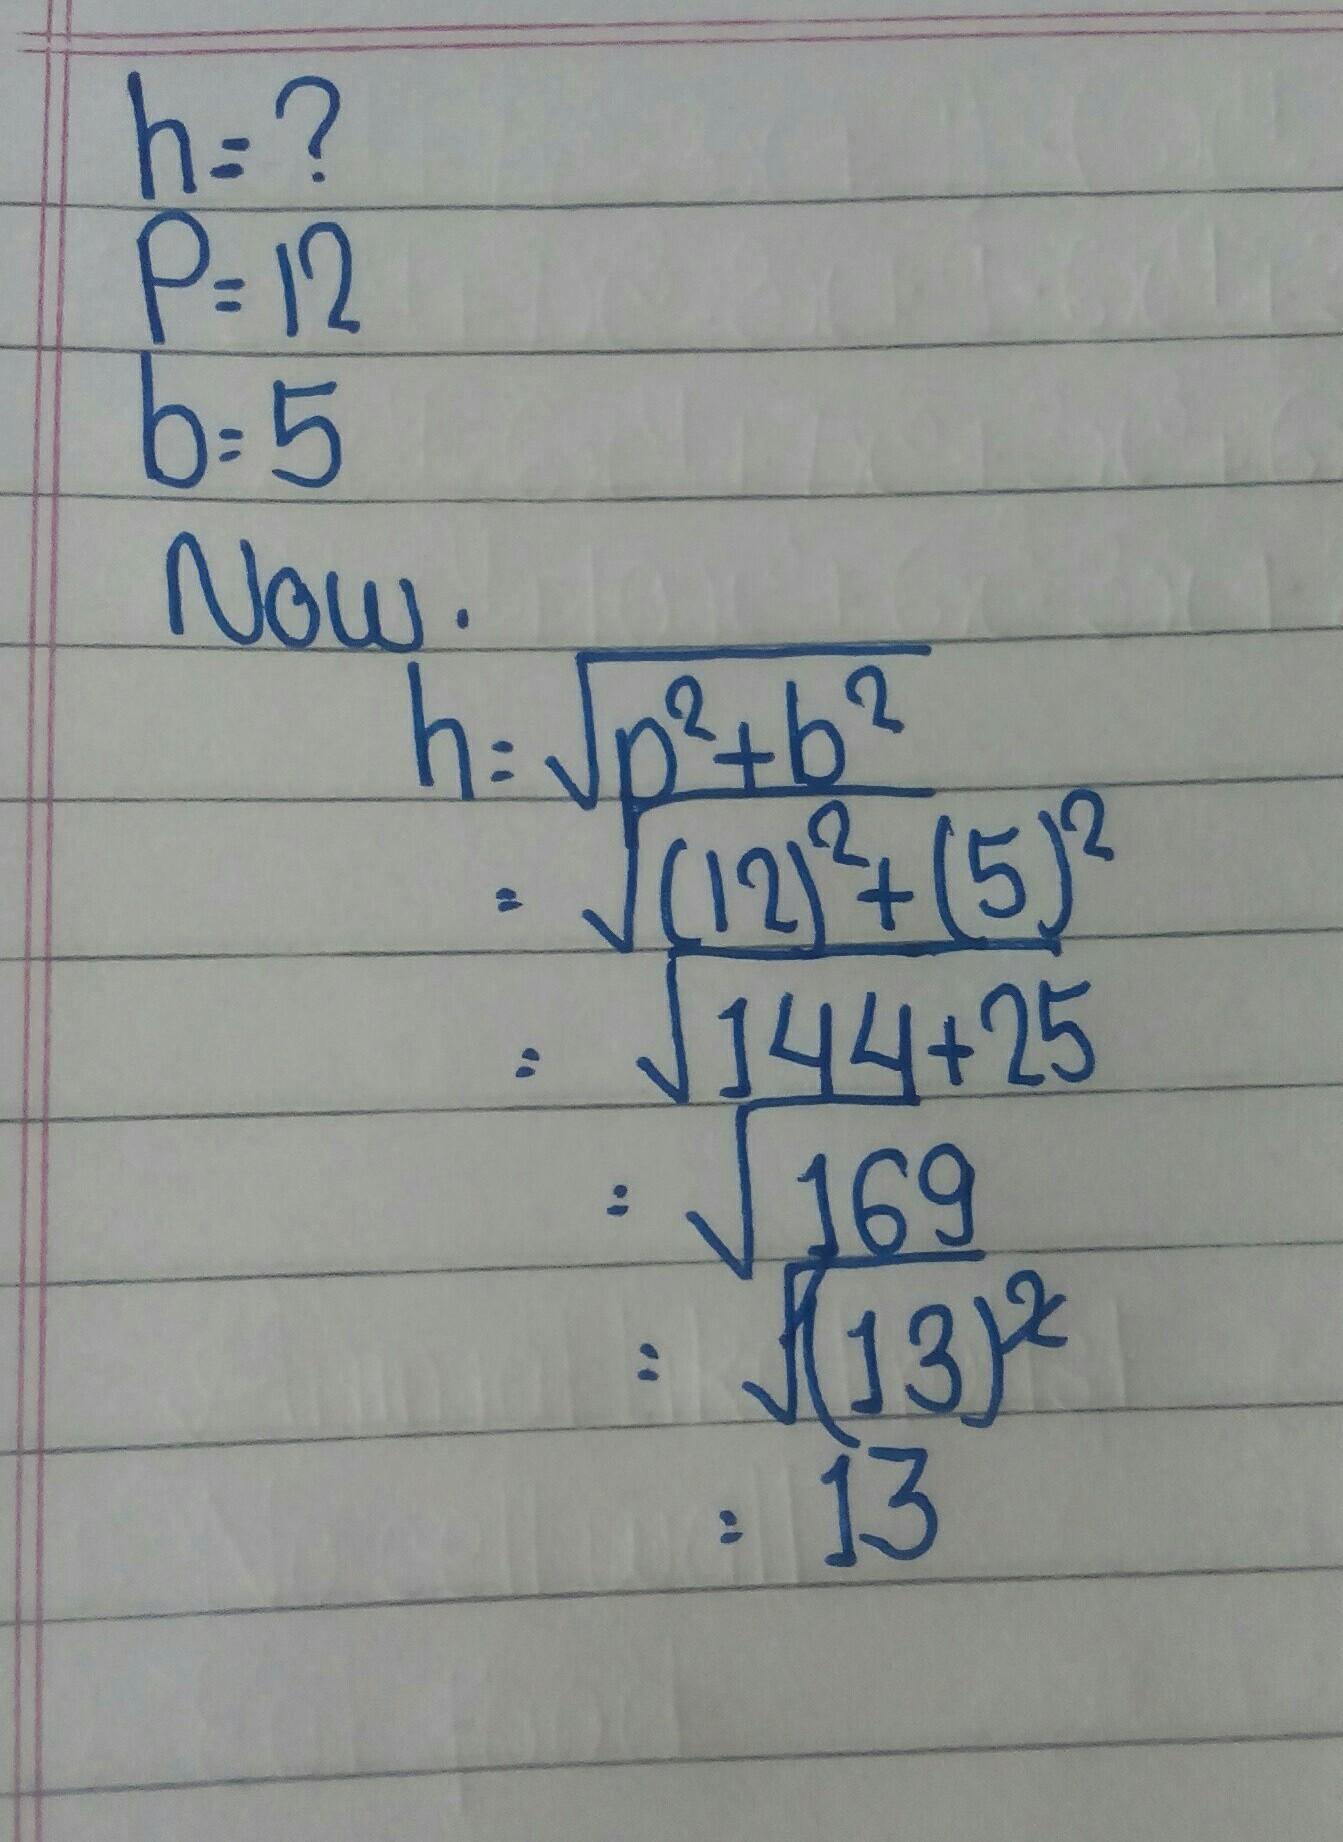 h=?
P=12
b=5
Now.
h=√p²+b²
=√(12)²+(5)²
=√144+25
=√169
=√(13)²
=13